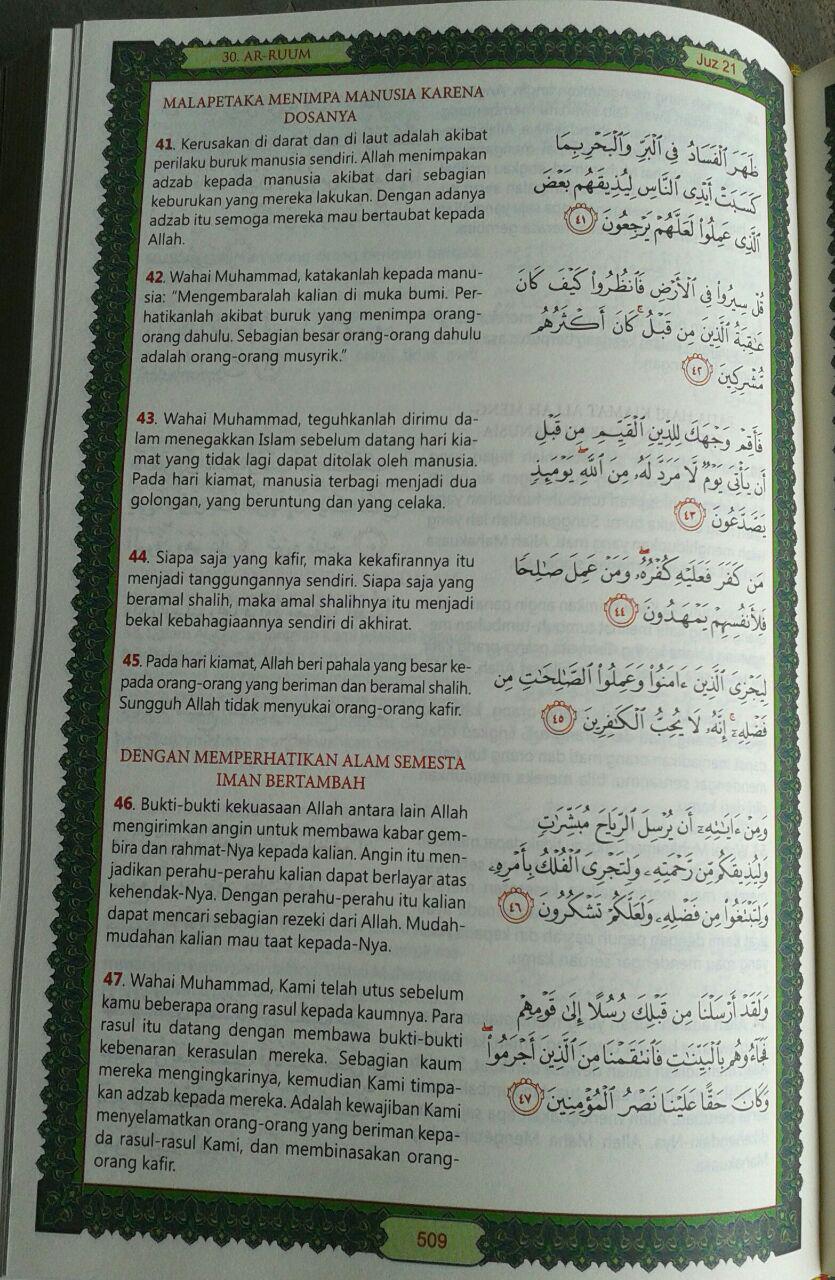 30. AR-RUUM
Juz 21
MALAPETAKA MENIMPA MANUSIA KARENA
DOSANYA
41. Kerusakan di darat dan di laut adalah akibat
perilaku buruk manusia sendiri. Allah menimpakan
adzab kepada manusia akibat dari sebagian
keburukan yang mereka lakukan. Dengan adanya
adzab itu semoga mereka mau bertaubat kepada
Allah.
ظَهَرَ الْفَسَادُ فِي الْبَرِّ وَالْبَحْرِ بِمَا
كَسَبَتْ أَيْدِى النَّاسِ لِيُذِيقَهُم بَعْضَ
الَّذِى عَمِلُوا۟ لَعَلَّهُمْ يَرْجِعُونَ ٤١
42. Wahai Muhammad, katakanlah kepada manu-
sia: "Mengembaralah kalian di muka bumi. Per-
hatikanlah akibat buruk yang menimpa orang-
orang dahulu. Sebagian besar orang-orang dahulu
adalah orang-orang musyrik."
قُلْ سِيرُوا۟ فِى الْأَرْضِ فَانظُرُوا۟ كَيْفَ كَانَ
عَـٰقِبَةُ الَّذِينَ مِن قَبْلُ ۚ كَانَ أَكْثَرُهُم
مُّشْرِكِينَ ٤٢
43. Wahai Muhammad, teguhkanlah dirimu da-
lam menegakkan Islam sebelum datang hari kia-
mat yang tidak lagi dapat ditolak oleh manusia.
Pada hari kiamat, manusia terbagi menjadi dua
golongan, yang beruntung dan yang celaka.
فَأَقِمْ وَجْهَكَ لِلدِّينِ الْقَيِّمِ مِن قَبْلِ
أَن يَأْتِىَ يَوْمٌ لَّا مَرَدَّ لَهُۥ مِنَ اللَّهِ ۖ يَوْمَئِذٍ
يَصَّدَّعُونَ ٤٣
44. Siapa saja yang kafir, maka kekafirannya itu
menjadi tanggungannya sendiri. Siapa saja yang
beramal shalih, maka amal shalihnya itu menjadi
bekal kebahagiaannya sendiri di akhirat.
مَن كَفَرَ فَعَلَيْهِ كُفْرُهُۥ ۖ وَمَنْ عَمِلَ صَـٰلِحًا
فَلِأَنفُسِهِمْ يَمْهَدُونَ ٤٤
45. Pada hari kiamat, Allah beri pahala yang besar ke-
pada orang-orang yang beriman dan beramal shalih.
Sungguh Allah tidak menyukai orang-orang kafir.
لِيَجْزِىَ الَّذِينَ ءَامَنُوا۟ وَعَمِلُوا۟ الصَّـٰلِحَـٰتِ مِن
فَضْلِهِۦٓ ۚ إِنَّهُۥ لَا يُحِبُّ الْكَـٰفِرِينَ ٤٥
DENGAN MEMPERHATIKAN ALAM SEMESTA
IMAN BERTAMBAH
46. Bukti-bukti kekuasaan Allah antara lain Allah
mengirimkan angin untuk membawa kabar gem-
bira dan rahmat-Nya kepada kalian. Angin itu men-
jadikan perahu-perahu kalian dapat berlayar atas
kehendak-Nya. Dengan perahu-perahu itu kalian
dapat mencari sebagian rezeki dari Allah. Mudah-
mudahan kalian mau taat kepada-Nya.
وَمِنْ ءَايَـٰتِهِۦٓ أَن يُرْسِلَ الرِّيَاحَ مُبَشِّرَٰتٍ
وَلِيُذِيقَكُم مِّن رَّحْمَتِهِۦ وَلِتَجْرِىَ الْفُلْكُ بِأَمْرِهِۦ
وَلِتَبْتَغُوا۟ مِن فَضْلِهِۦ وَلَعَلَّكُمْ تَشْكُرُونَ ٤٦
47. Wahai Muhammad, Kami telah utus sebelum
kamu beberapa orang rasul kepada kaumnya. Para
rasul itu datang dengan membawa bukti-bukti
kebenaran kerasulan mereka. Sebagian kaum
mereka mengingkarinya, kemudian Kami timpa-
kan adzab kepada mereka. Adalah kewajiban Kami
menyelamatkan orang-orang yang beriman kepa-
da rasul-rasul Kami, dan membinasakan orang-
orang kafir.
وَلَقَدْ أَرْسَلْنَا مِن قَبْلِكَ رُسُلًا إِلَىٰ قَوْمِهِمْ
فَجَآءُوهُم بِالْبَيِّنَـٰتِ فَانتَقَمْنَا مِنَ الَّذِينَ أَجْرَمُوا۟ ۖ
وَكَانَ حَقًّا عَلَيْنَا نَصْرُ الْمُؤْمِنِينَ ٤٧
509